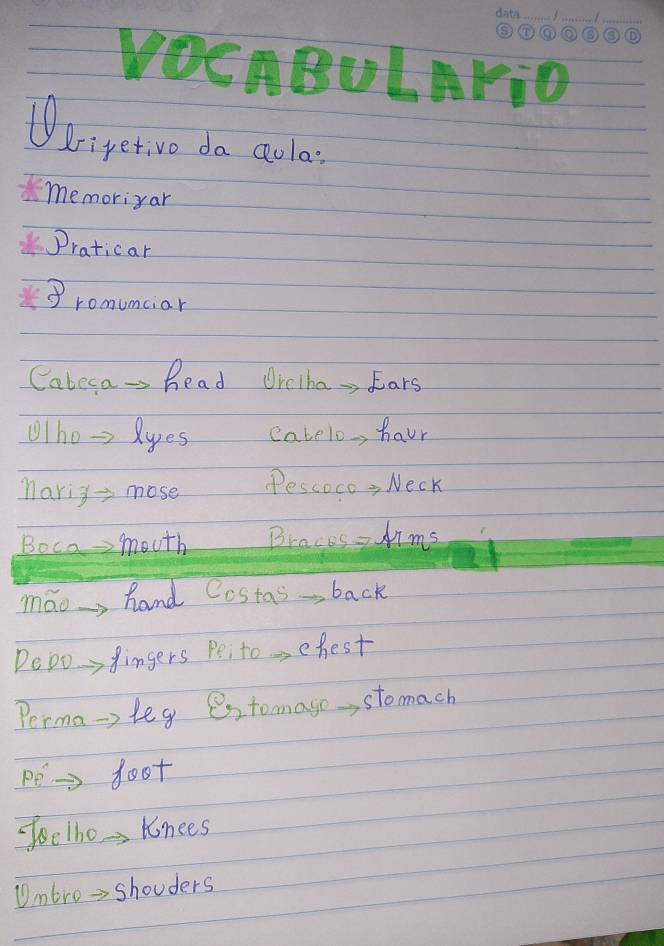 data ..... / ..... / .....
S T Q Q S S D
VOCABULARIO
Obijetivo da aula:
* Memorizar
* Praticar
* Pronunciar
Cabeça → head Orelha → Ears
Olho → Eyes Cabelo → haur
Nariz → nose Pescoço → Neck
Boca → mouth Braços → Arms
mão → hand Costas → back
Dedo → fingers Peito → chest
Perna → leg Estomago → stomach
Pé → foot
Joelho → Knees
Ombro → shouders